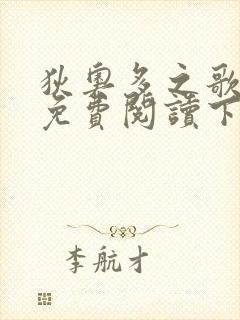 狄奧多之歌
免費閱讀下
李航才